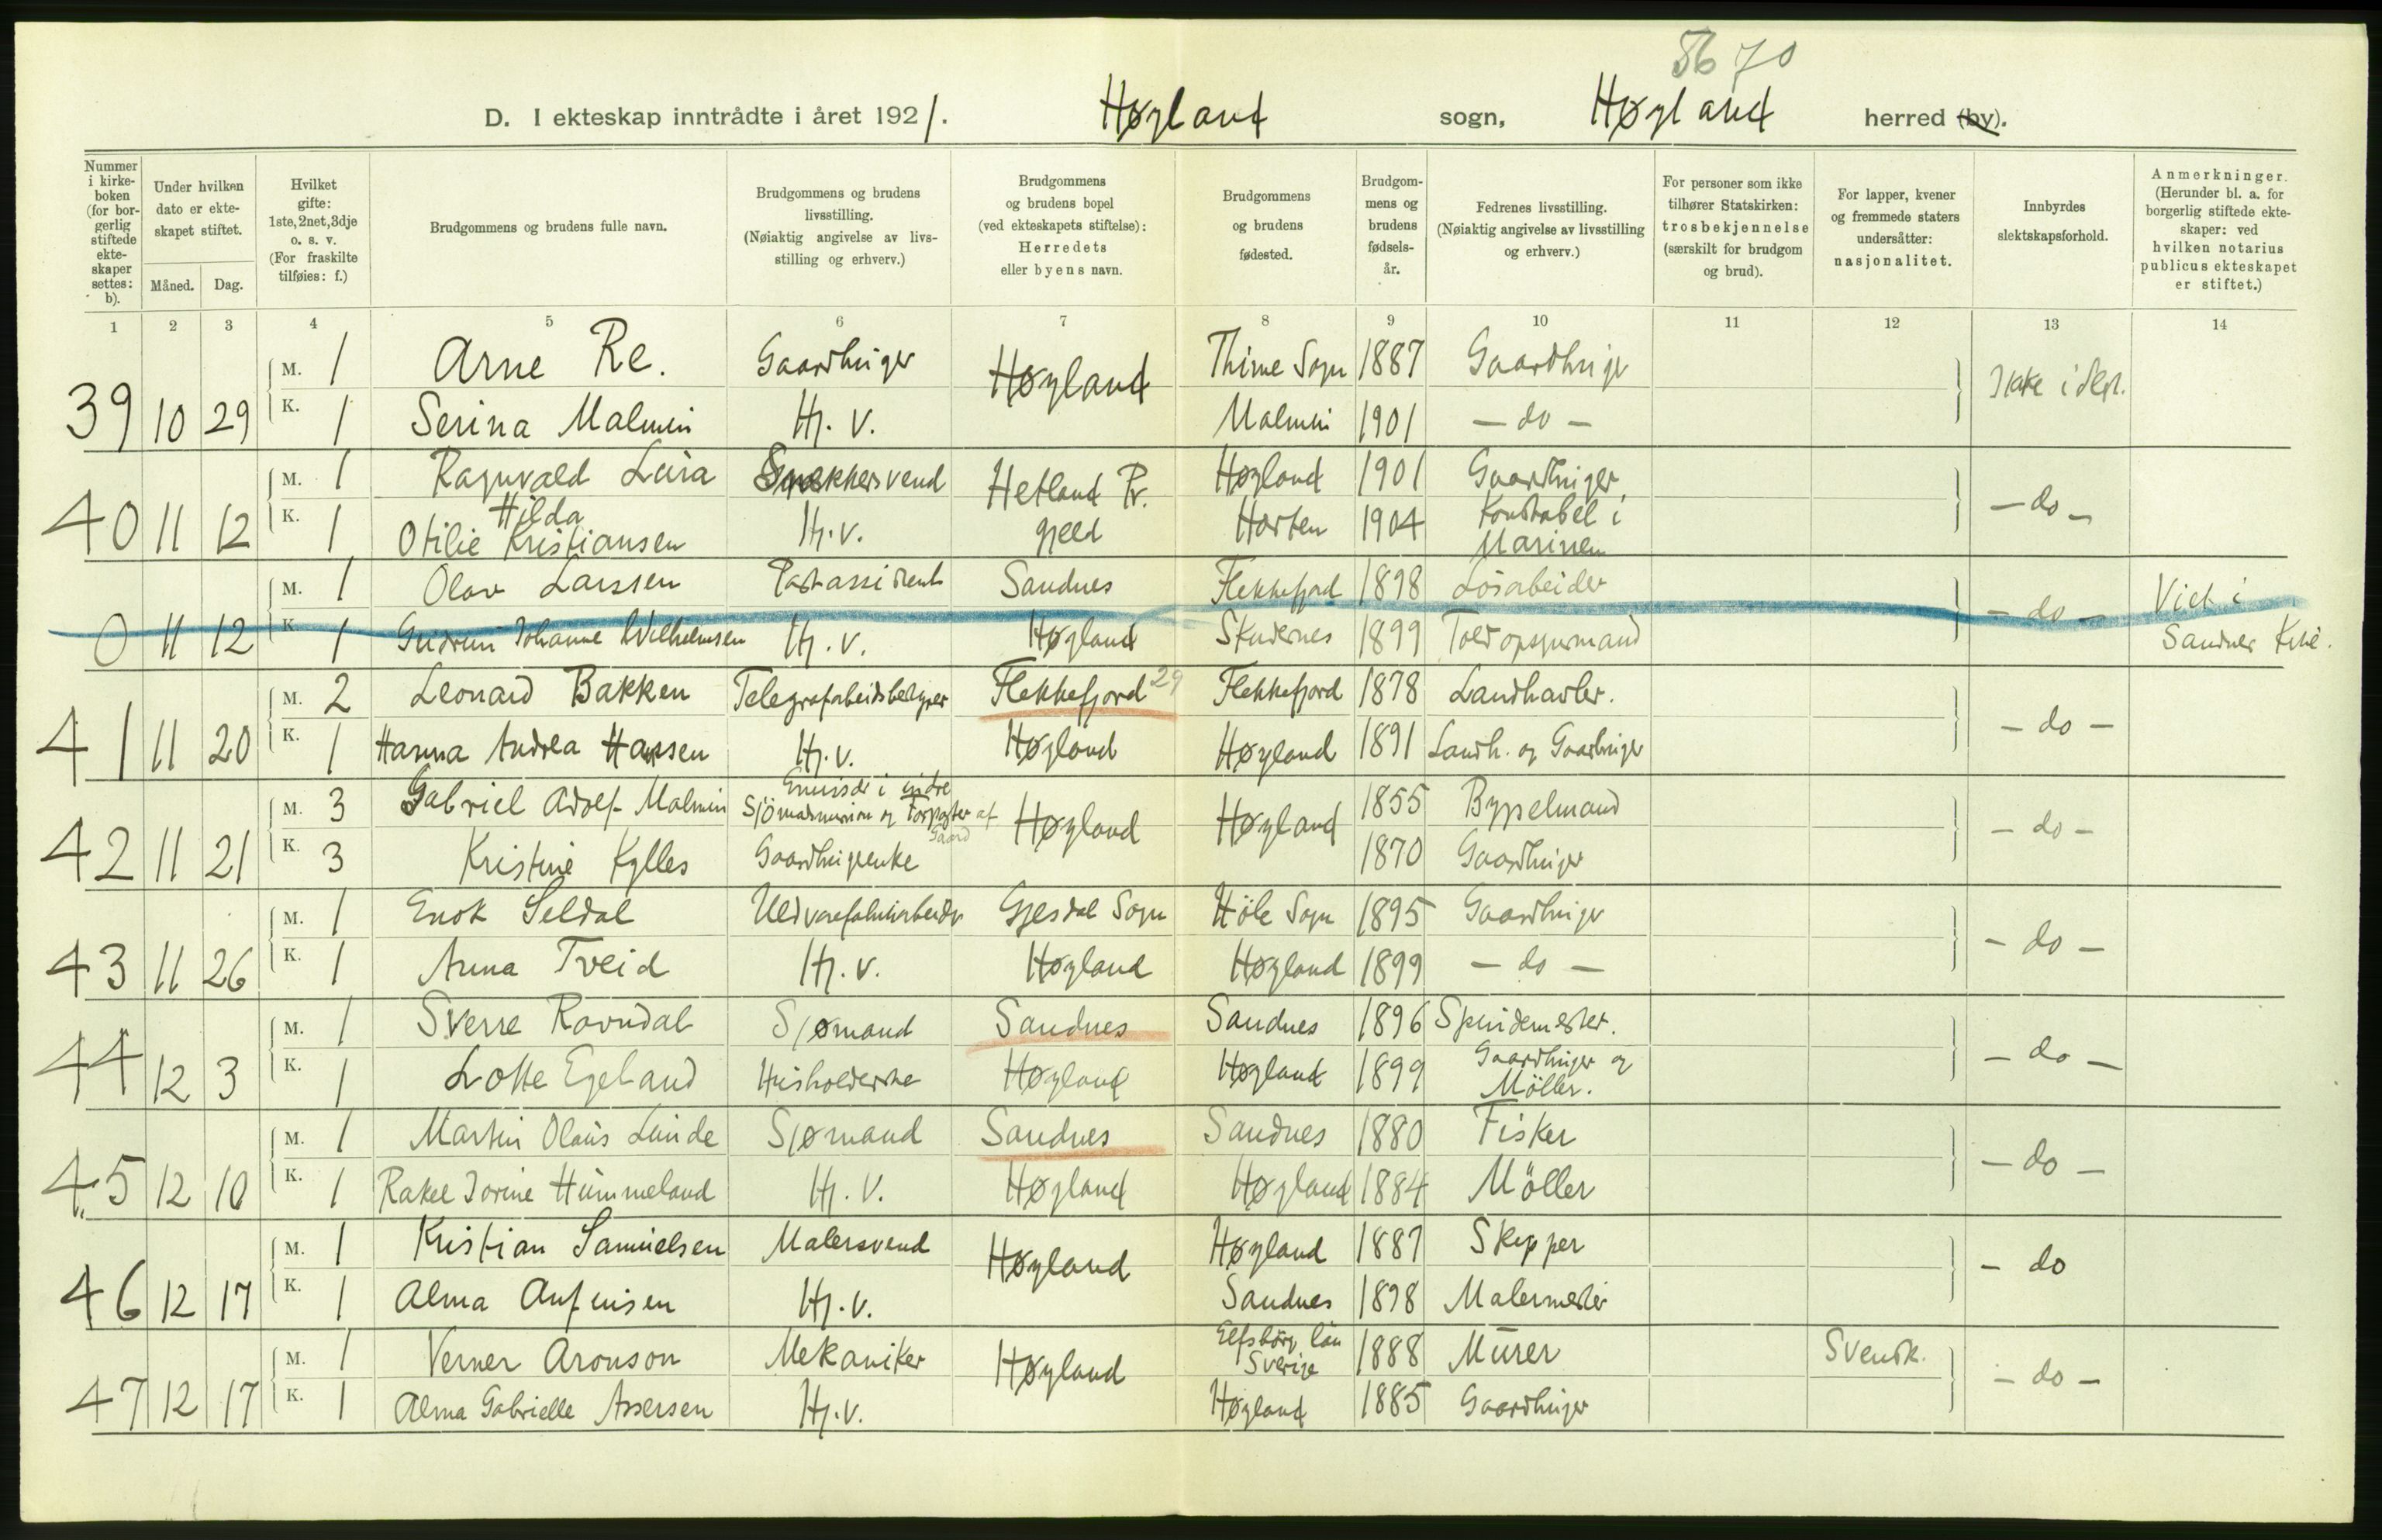 56 70
D. I ekteskap inntrådte i året 1921. Høyland sogn, Høyland herred (by).
Nummer i kirkeboken (for borgerlig stiftede ekteskaper settes: b).
Under hvilken dato er ekteskapet stiftet.
Måned. Dag.
Hvilket gifte: 1ste, 2net, 3dje o. s. v. (For fraskilte tilføies: f.)
Brudgommens og brudens fulle navn.
Brudgommens og brudens livsstilling. (Nøiaktig angivelse av livsstilling og erhverv.)
Brudgommens og brudens bopel (ved ekteskapets stiftelse): Herredets eller byens navn.
Brudgommens og brudens fødested.
Brudgommens og brudens fødselsår.
Fedrenes livsstilling. (Nøiaktig angivelse av livsstilling og erhverv.)
For personer som ikke tilhører Statskirken: trosbekjennelse (særskilt for brudgom og brud).
For lapper, kvener og fremmede staters undersåtter: nasjonalitet.
Innbyrdes slektskapsforhold.
Anmerkninger. (Herunder bl. a. for borgerlig stiftede ekteskaper: ved hvilken notarius publicus ekteskapet er stiftet.)
1 2 3 4 5 6 7 8 9 10 11 12 13 14
39 10 29 M. 1 Arne Re. Gaardbruger Høyland Thime Sogn 1887 Gaardbruger Ikke i slegt.
K. 1 Serina Malmin Hj. v. Malmin 1901 – do –
40 11 12 M. 1 Ragnvald Lura Snekkersvend Hetland Pr. gjeld Høyland 1901 Gaardbruger – do –
K. 1 Hilda Otilie Kristiansen Hj. v. Horten 1904 Konstabel i Marinen
0 11 12 M. 1 Olav Larssen Postassistent Sandnes Flekkefjord 1898 Løsarbeider – do – Viet i Sandnes Kirke.
K. 1 Gudrun Johanne Wilhelmsen Hj. v. Høyland Skudenes 1899 Toldopsynsmand
41 11 20 M. 2 Leonard Bakken Telegrafarbeidsbestyrer Flekkefjord 29 Flekkefjord 1878 Landhandler. – do –
K. 1 Hanna Andrea Hanssen Hj. v. Høyland Høyland 1891 Landh. og Gaardbruger
42 11 21 M. 3 Gabriel Adolf Malmin Emissær i indre Sjømandsmission og Forpagter af Gaard Høyland Høyland 1855 Bygselmand – do –
K. 3 Kristine Kylles Gaardbrugerenke 1870 Gaardbruger
43 11 26 M. 1 Enok Seldal Uldvarefabrikarbeider Gjesdal Sogn Høle Sogn 1895 Gaardbruger – do –
K. 1 Anna Tveid Hj. v. Høyland Høyland 1899 – do –
44 12 3 M. 1 Sverre Ravndal Sjømand Sandnes Sandnes 1896 Spindemester. – do –
K. 1 Lotte Egeland Husholderske Høyland Høyland 1899 Gaardbruger og Møller.
45 12 10 M. 1 Martin Olaus Lunde Sjømand Sandnes Sandnes 1880 Fisker – do –
K. 1 Rakel Jorine Hummeland Hj. v. Høyland Høyland 1884 Møller
46 12 17 M. 1 Kristian Samuelsen Malersvend Høyland Høyland 1887 Skipper – do
K. 1 Alma Aufinsen Hj. v. Sandnes 1898 Malermester
47 12 17 M. 1 Verner Aronson Mekaniker Høyland Elfsborg län Sverige 1888 Murer Svensk. – do –
K. 1 Alma Gabrielle Assersen Hj. v. Høyland 1885 Gaardbruger